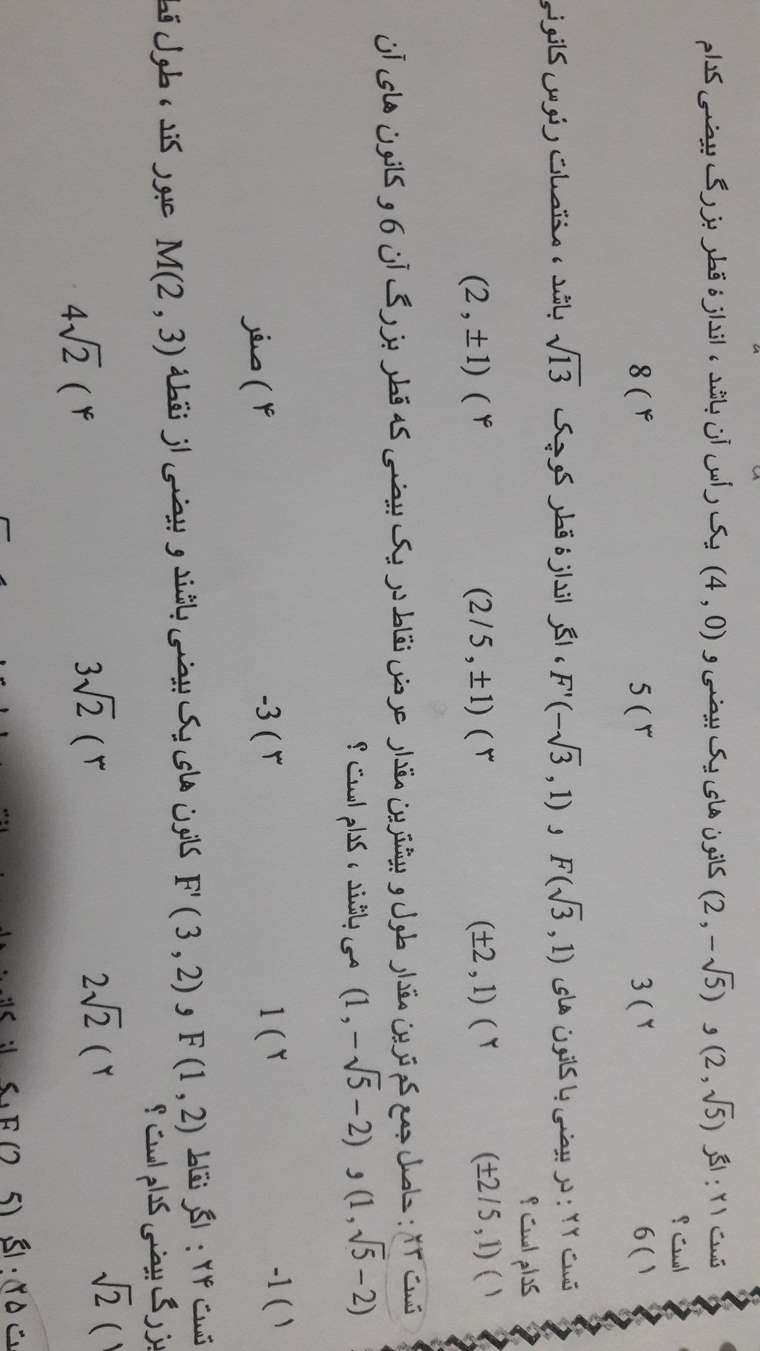 تست ۲۱ : اگر (2 , √5) و (2 , −√5) کانون های یک بیضی و (4 , 0) یک رأس آن باشد ، اندازهٔ قطر بزرگ بیضی کدام
است ؟
۱) 6 ۲) 3 ۳) 5 ۴) 8
تست ۲۲ : در بیضی با کانون های F(√3 , 1) و F'(−√3 , 1) ، اگر اندازهٔ قطر کوچک √13 باشد ، مختصات رئوس کانونی
کدام است ؟
۱) (±2/5 , 1) ۲) (±2 , 1) ۳) (2/5 , ±1) ۴) (2 , ±1)
تست ۲۳ : حاصل جمع کم ترین مقدار طول و بیشترین مقدار عرض نقاط در یک بیضی که قطر بزرگ آن 6 و کانون های آن
(1 , √5 − 2) و (1 , −√5 − 2) می باشند ، کدام است ؟
۱) -1 ۲) 1 ۳) -3 ۴) صفر
تست ۲۴ : اگر نقاط F (1 , 2) و F' (3 , 2) کانون های یک بیضی باشند و بیضی از نقطهٔ M(2 , 3) عبور کند ، طول
بزرگ بیضی کدام است ؟
۱) √2 ۲) 2√2 ۳) 3√2 ۴) 4√2
۲۵ : اگر